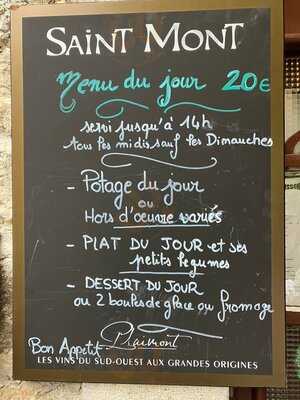 SAINT MONT
Menu du jour 20€
servi jusqu'à 14h
tous les midis sauf les Dimanches
- Potage du jour
ou
Hors d'oeuvre variés
- PLAT DU JOUR et ses
petits legumes
- DESSERT DU JOUR
ou 2 boules de glace ou fromage
Bon Appetit
Plaimont
LES VINS DU SUD-OUEST AUX GRANDES ORIGINES